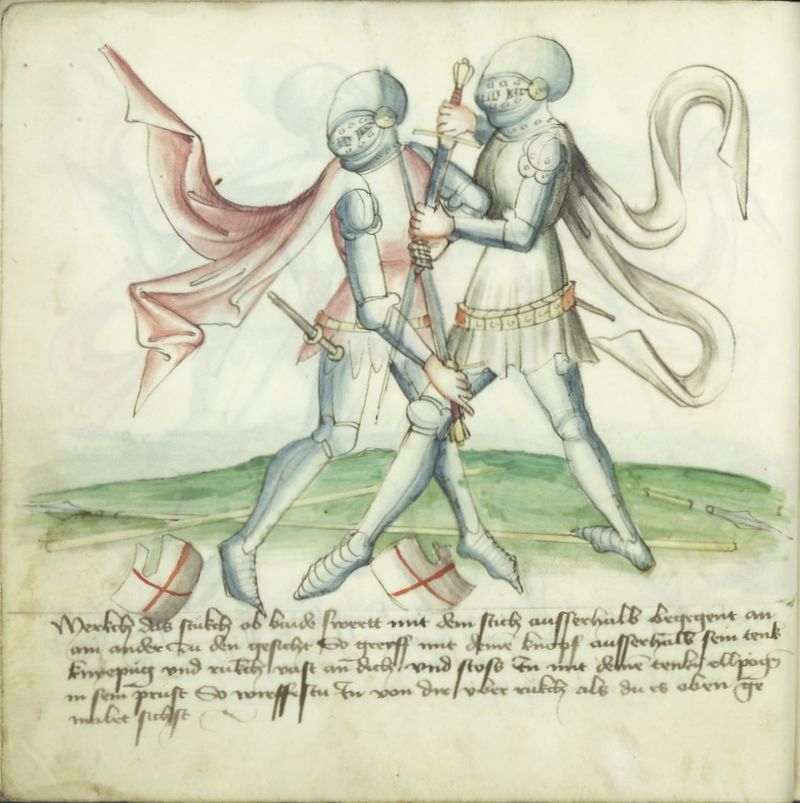 Merckh das stukch ob baide swertt mit dem stich ausserhalb begegent an
am ander zu den gesicht So greyff mit deine knopf ausserhalb sein tenk
knyepüg vnd rukch vast an dich vnd stoss in mit deine tenkn ellpogn
in sein prust So wirffestu in von dir vber rukch als du es oben ge
malet sichst